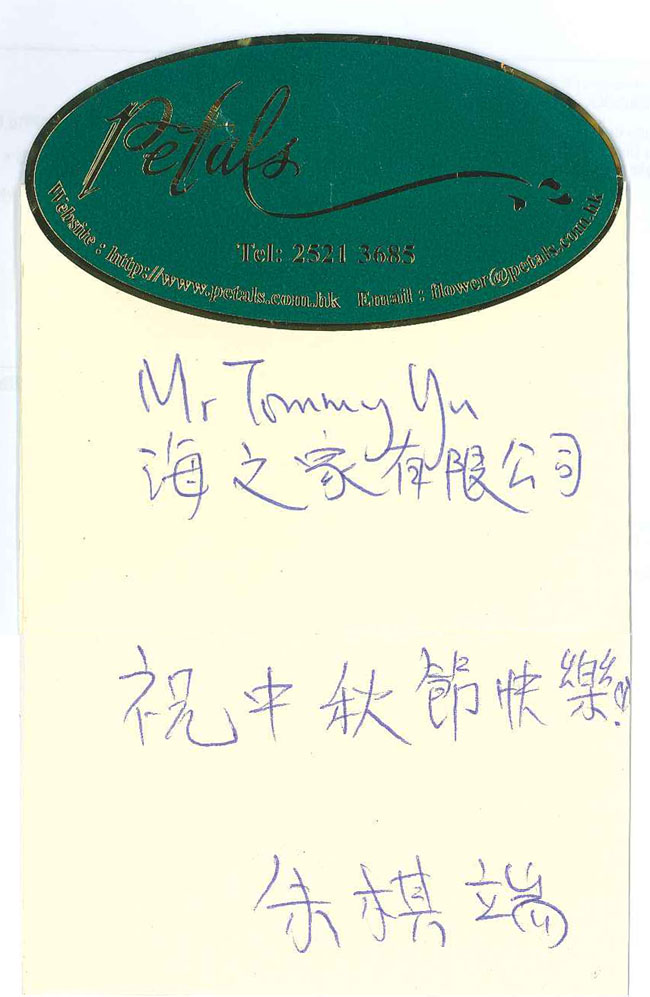 Petals
Tel: 2521 3685
Website : http://www.petals.com.hk Email : flower@petals.com.hk
Mr Tommy Yu
海之家有限公司
祝中秋節快樂!
朱棋端